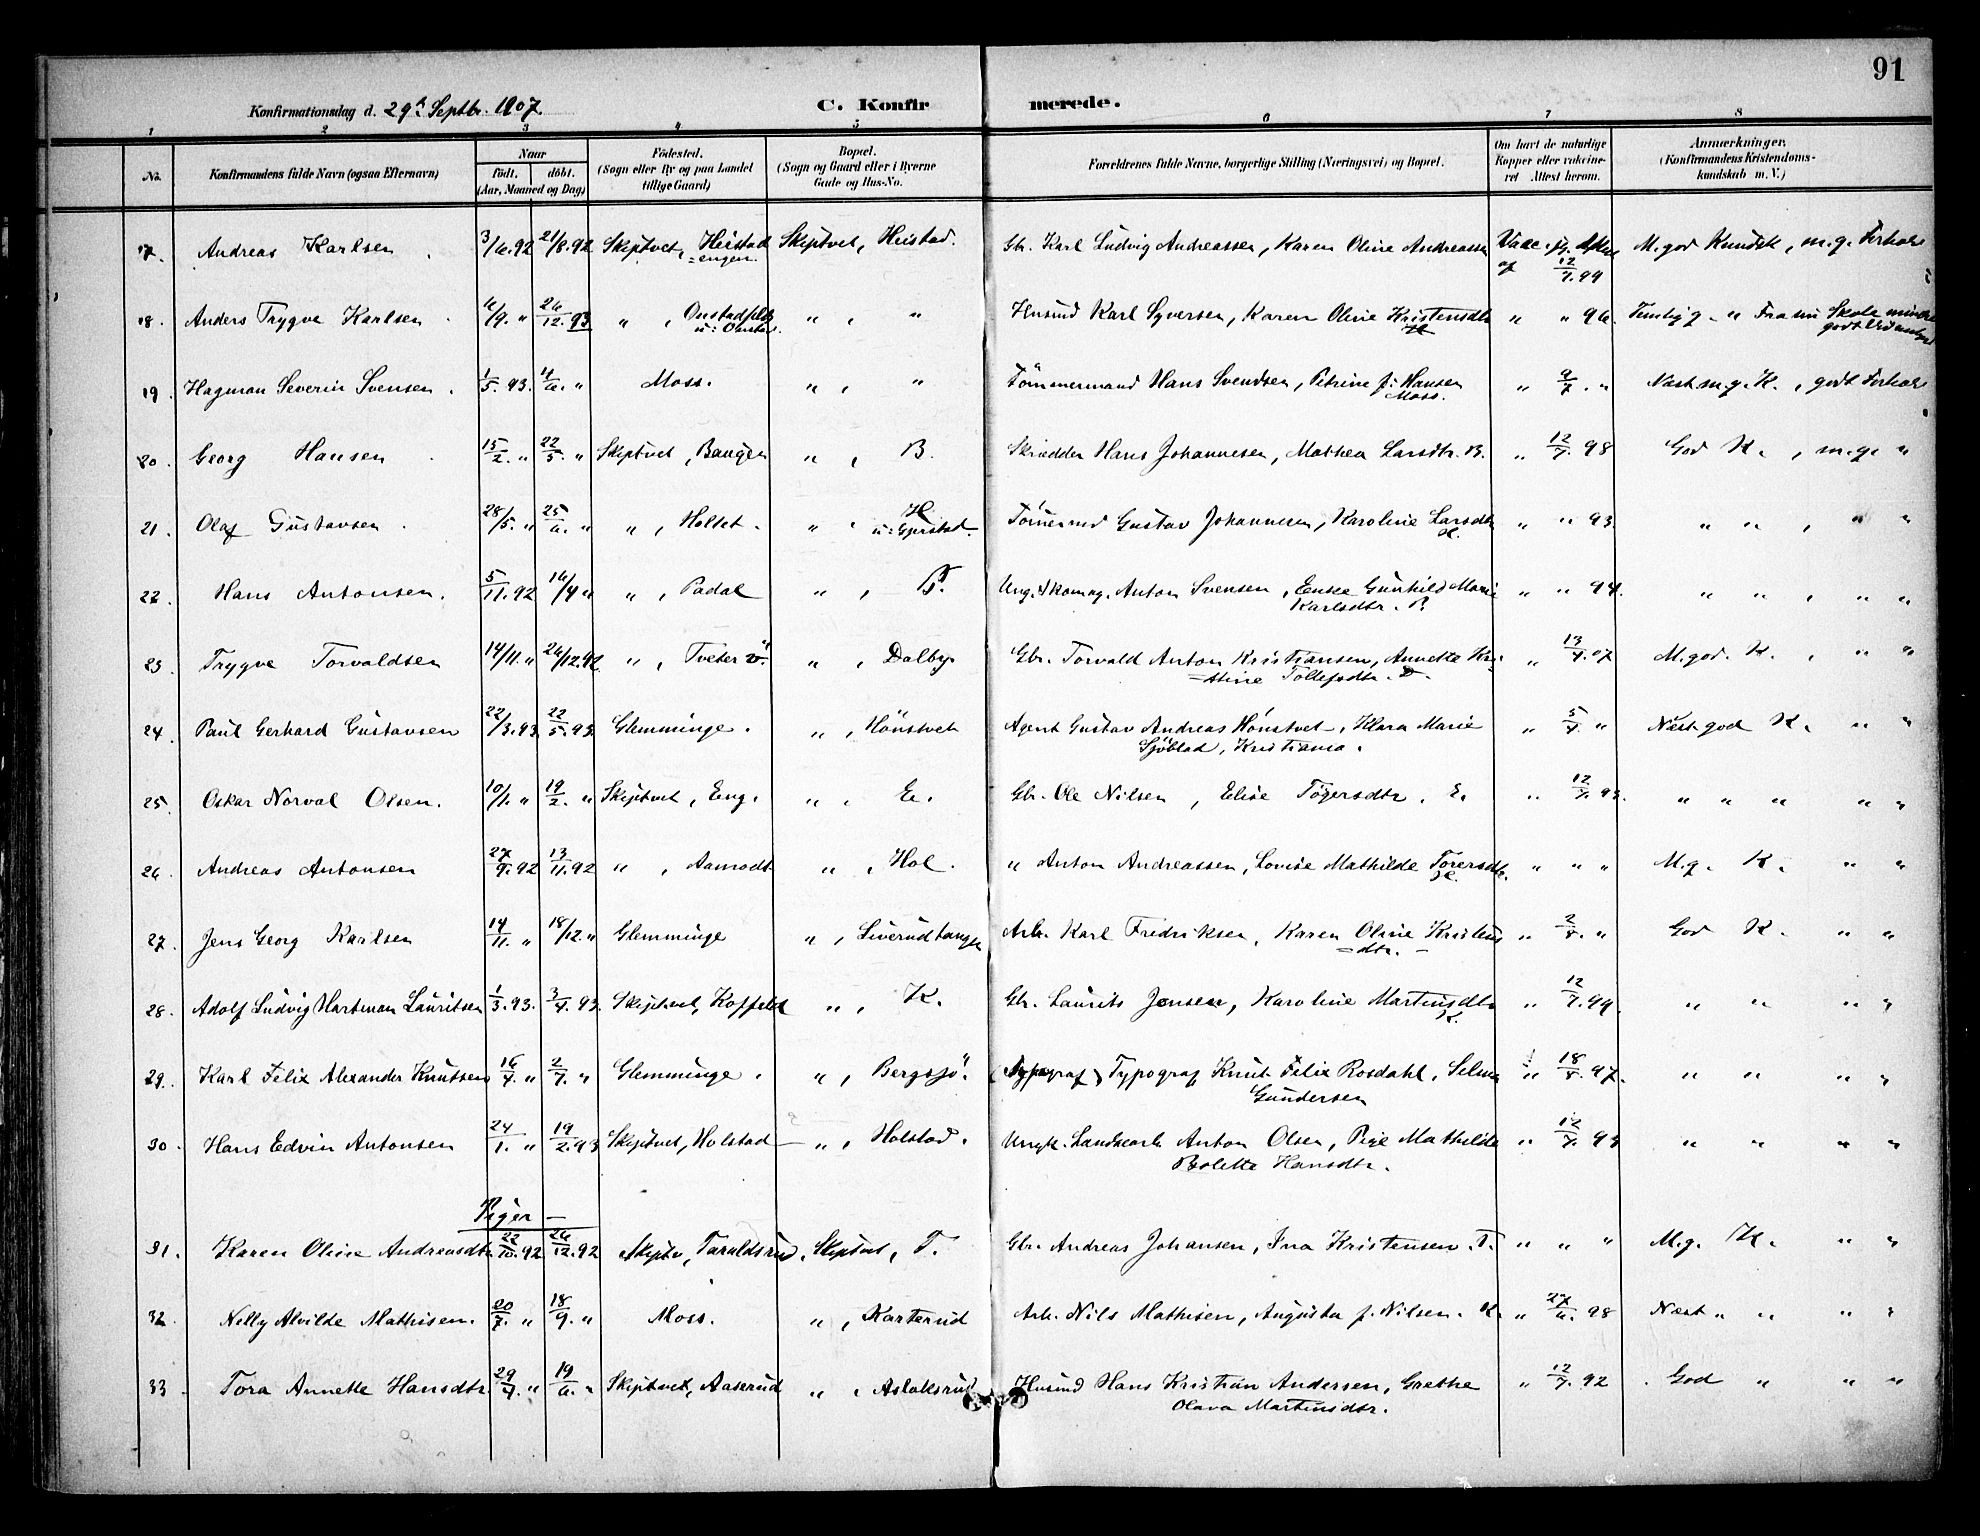 91
Konfirmationsdag d. 29de Septbr. 1907. C. Konfirmerede.
1 2 3 4 5 6 7 8
No. Konfirmandens fulde Navn (ogsaa Efternavn) Naar født. døbt. (Aar, Maaned og Dag) Fødested. (Sogn eller By og paa Landet tillige Gaard) Bopæl. (Sogn og Gaard eller i Byerne Gade og Hus-No. Forældrenes fulde Navne, borgerlige Stilling (Næringsvei) og Bopæl. Om havt de naturlige Kopper eller vakcineret Attest herom. Anmærkninger. (Konfirmandens Kristendomskundskab m. V.)
17. Andreas Karlsen 3/6.92 21/8.92 Skiptvet, Heistad Skiptvet, Heistad. Gbr. Karl Ludvig Andreassen, Karen Oline Andreassen M. god Kundsk, m.g. Forhold
=engen. af 12/7.99
18. Anders Trygve Karlsen /9. " 26/12.93 " , " , " Husmd Karl Syversen, Karen Oline Kristensdtr " " 96.
19. Hagman Severin Svensen. 1/5.93. 4/6. " Moss. " , " Tømmermand Hans Svendsen, Petrine f. Hansen " 9/7. " Næst m.g. K. , godt Forhold
Moss.
20. Georg Hansen 15/2. " 22/5. " Skiptvet, Baugen " , B. Skrædder Hans Johannesen, Mathea Larsdtr. B. " 12/7. 98 God K. , m.g. "
21. Olaf Gustavsen 28/5. " 25/6. " " , Holset. " , H. Gustav Johannesen, Karoline Larsdtr " " 93. " " , " "
u: Gjerstad. H.
22. Hans Antonsen. 5/11.92 16/4 " " , Padal " , P. Ung. Skomag. Anton Svensen, Enke Gunhild Marie " " 94. " " , " "
Karlsdtr. P.
23. Trygve Torvaldsen 14/11. " 26/12.92 " , Tveter v. " , Dalby Gbr. Torvald Anton Kristiansen, Annette Kri- " 13/4.07 M. god. K. , " "
=stine Tollefsdtr. D.
24. Paul Gerhard Gustavsen 22/3.93 22/5.93 Glemminge. " , Hønstvet Agent Gustav Andreas Hønstvet, Klara Marie " 5/4 " Næst god K. " "
Sjöblad, Kristiania.
25. Oskar Norval Olsen. 10/1. " 19/2. " Skiptvet, Eng. " , E. Gbr. Ole Nilsen, Elise Tøgersdtr. E. " 12/7.93. " " " " "
26. Andreas Antonsen 27/9.92 13/11.92 " , Aamodt " , Hol. " Anton Andreassen, Lovise Mathilde Torersdtr. " " " M.g. K. " "
H.
27. Jens Georg Karlsen 14/11. " 18/12. " Glemminge " , Siverudtangen Arb. Karl Fredriksen, Karen Oline Kristens " 2/8. " God K. " "
=dtr. -
28. Adolf Ludvig Hartman Lauritsen 1/3.93. 3/4.93. Skiptvet, Koffeld " , K. Gbr. Laurits Jensen, Karoline Martinsdtr " 12/7.99. " " " "
K.
29. Karl Felix Alexander Knutsen 16/4. " 2/7. " Glemminge. " , Bergsjö. (Typograf) Typograf Knut Felix Rosdahl, Selma " 18/8.97. " " " "
Gundersen
30. Hans Edvin Antonsen 24/1. " 19/2.93 Skiptvet, Holstad — " , Holstad. Ungk. Landhearb Anton Olsen, Pige Mathilde " 12/7.93 " " " "
Bolette Hansdtr.
Piger —
31. Karen Oline Andreasdtr 22/10.92 26/12.92 Skiptv, Taraldsrud, Skiptvet, T. Gbr. Andreas Johansen, Ina Kristensen. T. " " " M.g. K. " "
32. Nelly Alvilde Mathisen. 20/7. " 18/9. " Moss. " , Karterud Arb. Nils Mathisen, Augusta f. Nilsen. K. " 27/6.98 Næst " " " "
33 Tora Annette Hansdtr 29/4. " 19/6. " Skiptvet, Aaserud " , Aslaksrud Husmd Hans Kristian Andersen, Grethe " 12/7.92 God " " "
Olava Martinsdtr.